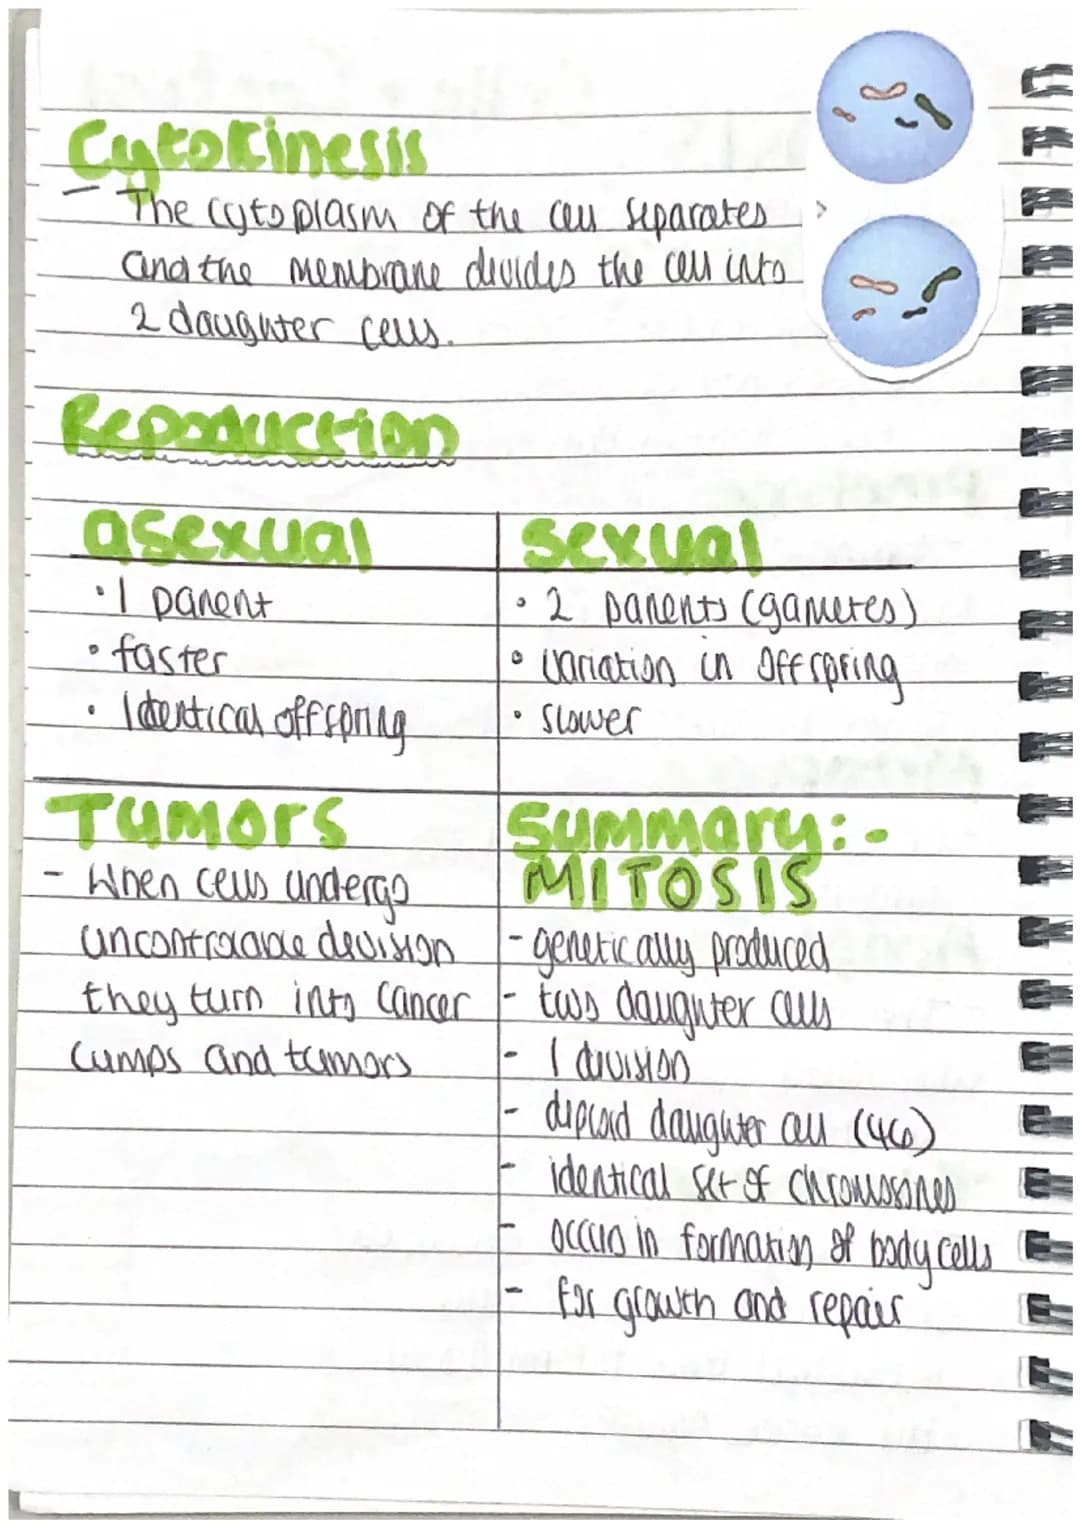 Cytokinesis
- The cytoplasm of the cell separates
and the membrane divides the cell into
2 daughter cells.
Reproduction
asexual
• 1 parent
• faster
• Identical offspring
sexual
• 2 parents (gametes)
• variation in offspring
• slower
Tumors
- When cells undergo
uncontrolable devision
they turn into cancer
lumps and tumors
Summary:-
MITOSIS
- genetically produced
- two daughter cells
- 1 division
- diploid daughter cell (46)
- identical set of chromosones
- occurs in formation of body cells
- for growth and repair